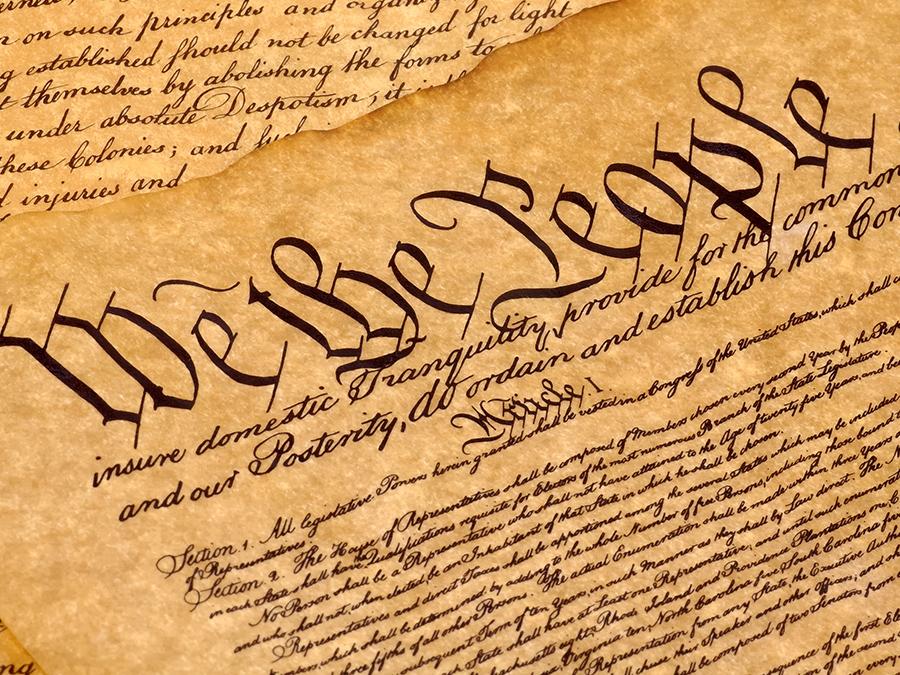 on such principles and
established should not be changed for light
themselves by abolishing the forms to
under absolute Despotism; it
these Colonies; and
injuries and
We the People
insure domestic Tranquility, provide for the common
and our Posterity, do ordain and establish this Con
Article I.
Section. 1. All legislative Powers herein granted shall be vested in a Congress of the United States, which shall
of Representatives.
Section. 2. The House of Representatives shall be composed of Members chosen every second Year by the Peop
in each State shall have Qualifications requisite for Electors of the most numerous Branch of the State Legislature.
No Person shall be a Representative who shall not have attained to the Age of twenty five Years, and be
and who shall not, when elected, be an Inhabitant of that State in which he shall be chosen.
Representatives and direct Taxes shall be apportioned among the several States which may be included
which shall be determined by adding to the whole Number of free Persons, including those bound
three fifths of all other Persons. The actual Enumeration shall be made within three Years
subsequent Term of ten Years, in such Manner as they shall by Law direct. The N
State shall have at Least one Representative; and until such enumerat
eight, Rhode Island and Providence Plantations one, C
Virginia ten, North Carolina five, South Carolina five
Representation from any State, the Executive Auth
chuse their Speaker and other Officers; and
shall be composed of two Senators from
sequence of the first Ele
of the second
ng